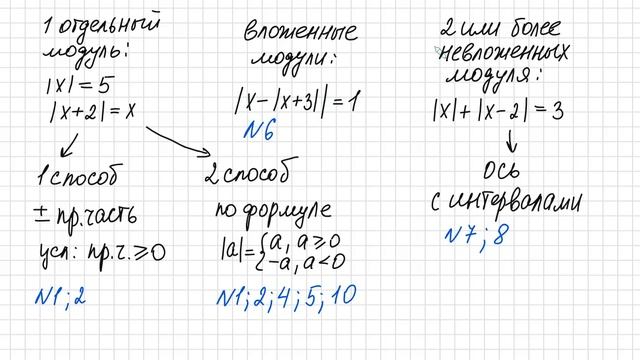 1 отдельный
модуль:
|x| = 5
|x+2| = x
1 способ
± пр. часть
усл: пр.ч. ≥ 0
N1; 2
2 способ
по формуле
|a| = { a, a ≥ 0
-a, a < 0
N1; 2; 4; 5; 10
вложенные
модули:
|x - |x+3|| = 1
N6
2 или более
невложенных
модуля:
|x| + |x-2| = 3
ось
с интервалами
N7; 8